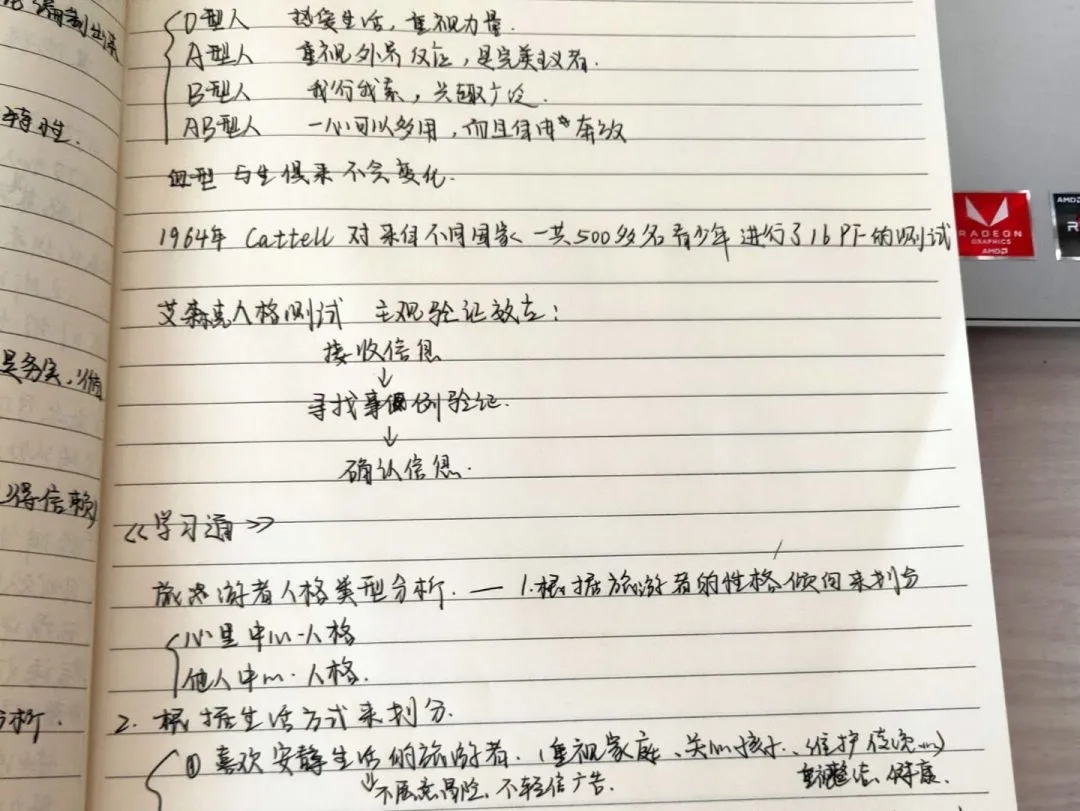 O型人 热爱生活,重视力量.
A型人 重视外界反应,是完美主义者.
B型人 我行我素,兴趣广泛.
AB型人 一心可以多用,而且得出奇效
血型 与生俱来 不会变化.
1964年 Cattell 对来自不同国家 一共500多名青少年进行了16PF的测试
艾森克人格测试 主观验证效应:
接收信息
↓
寻找事例验证.
↓
确认信息.
《学习通》
旅游者人格类型分析. — 1.根据旅游者的性格倾向来划分
心里中心人格
他人中心.人格.
2. 根据生活方式来划分.
① 喜欢安静生活的旅游者.(重视家庭、关心孩子、维护传统...)
不愿意冒险、不轻信广告.
重视整洁、健康.
特性.
是务实,
得信赖
分析.
RADEON
GRAPHICS
AMD
AMD
R